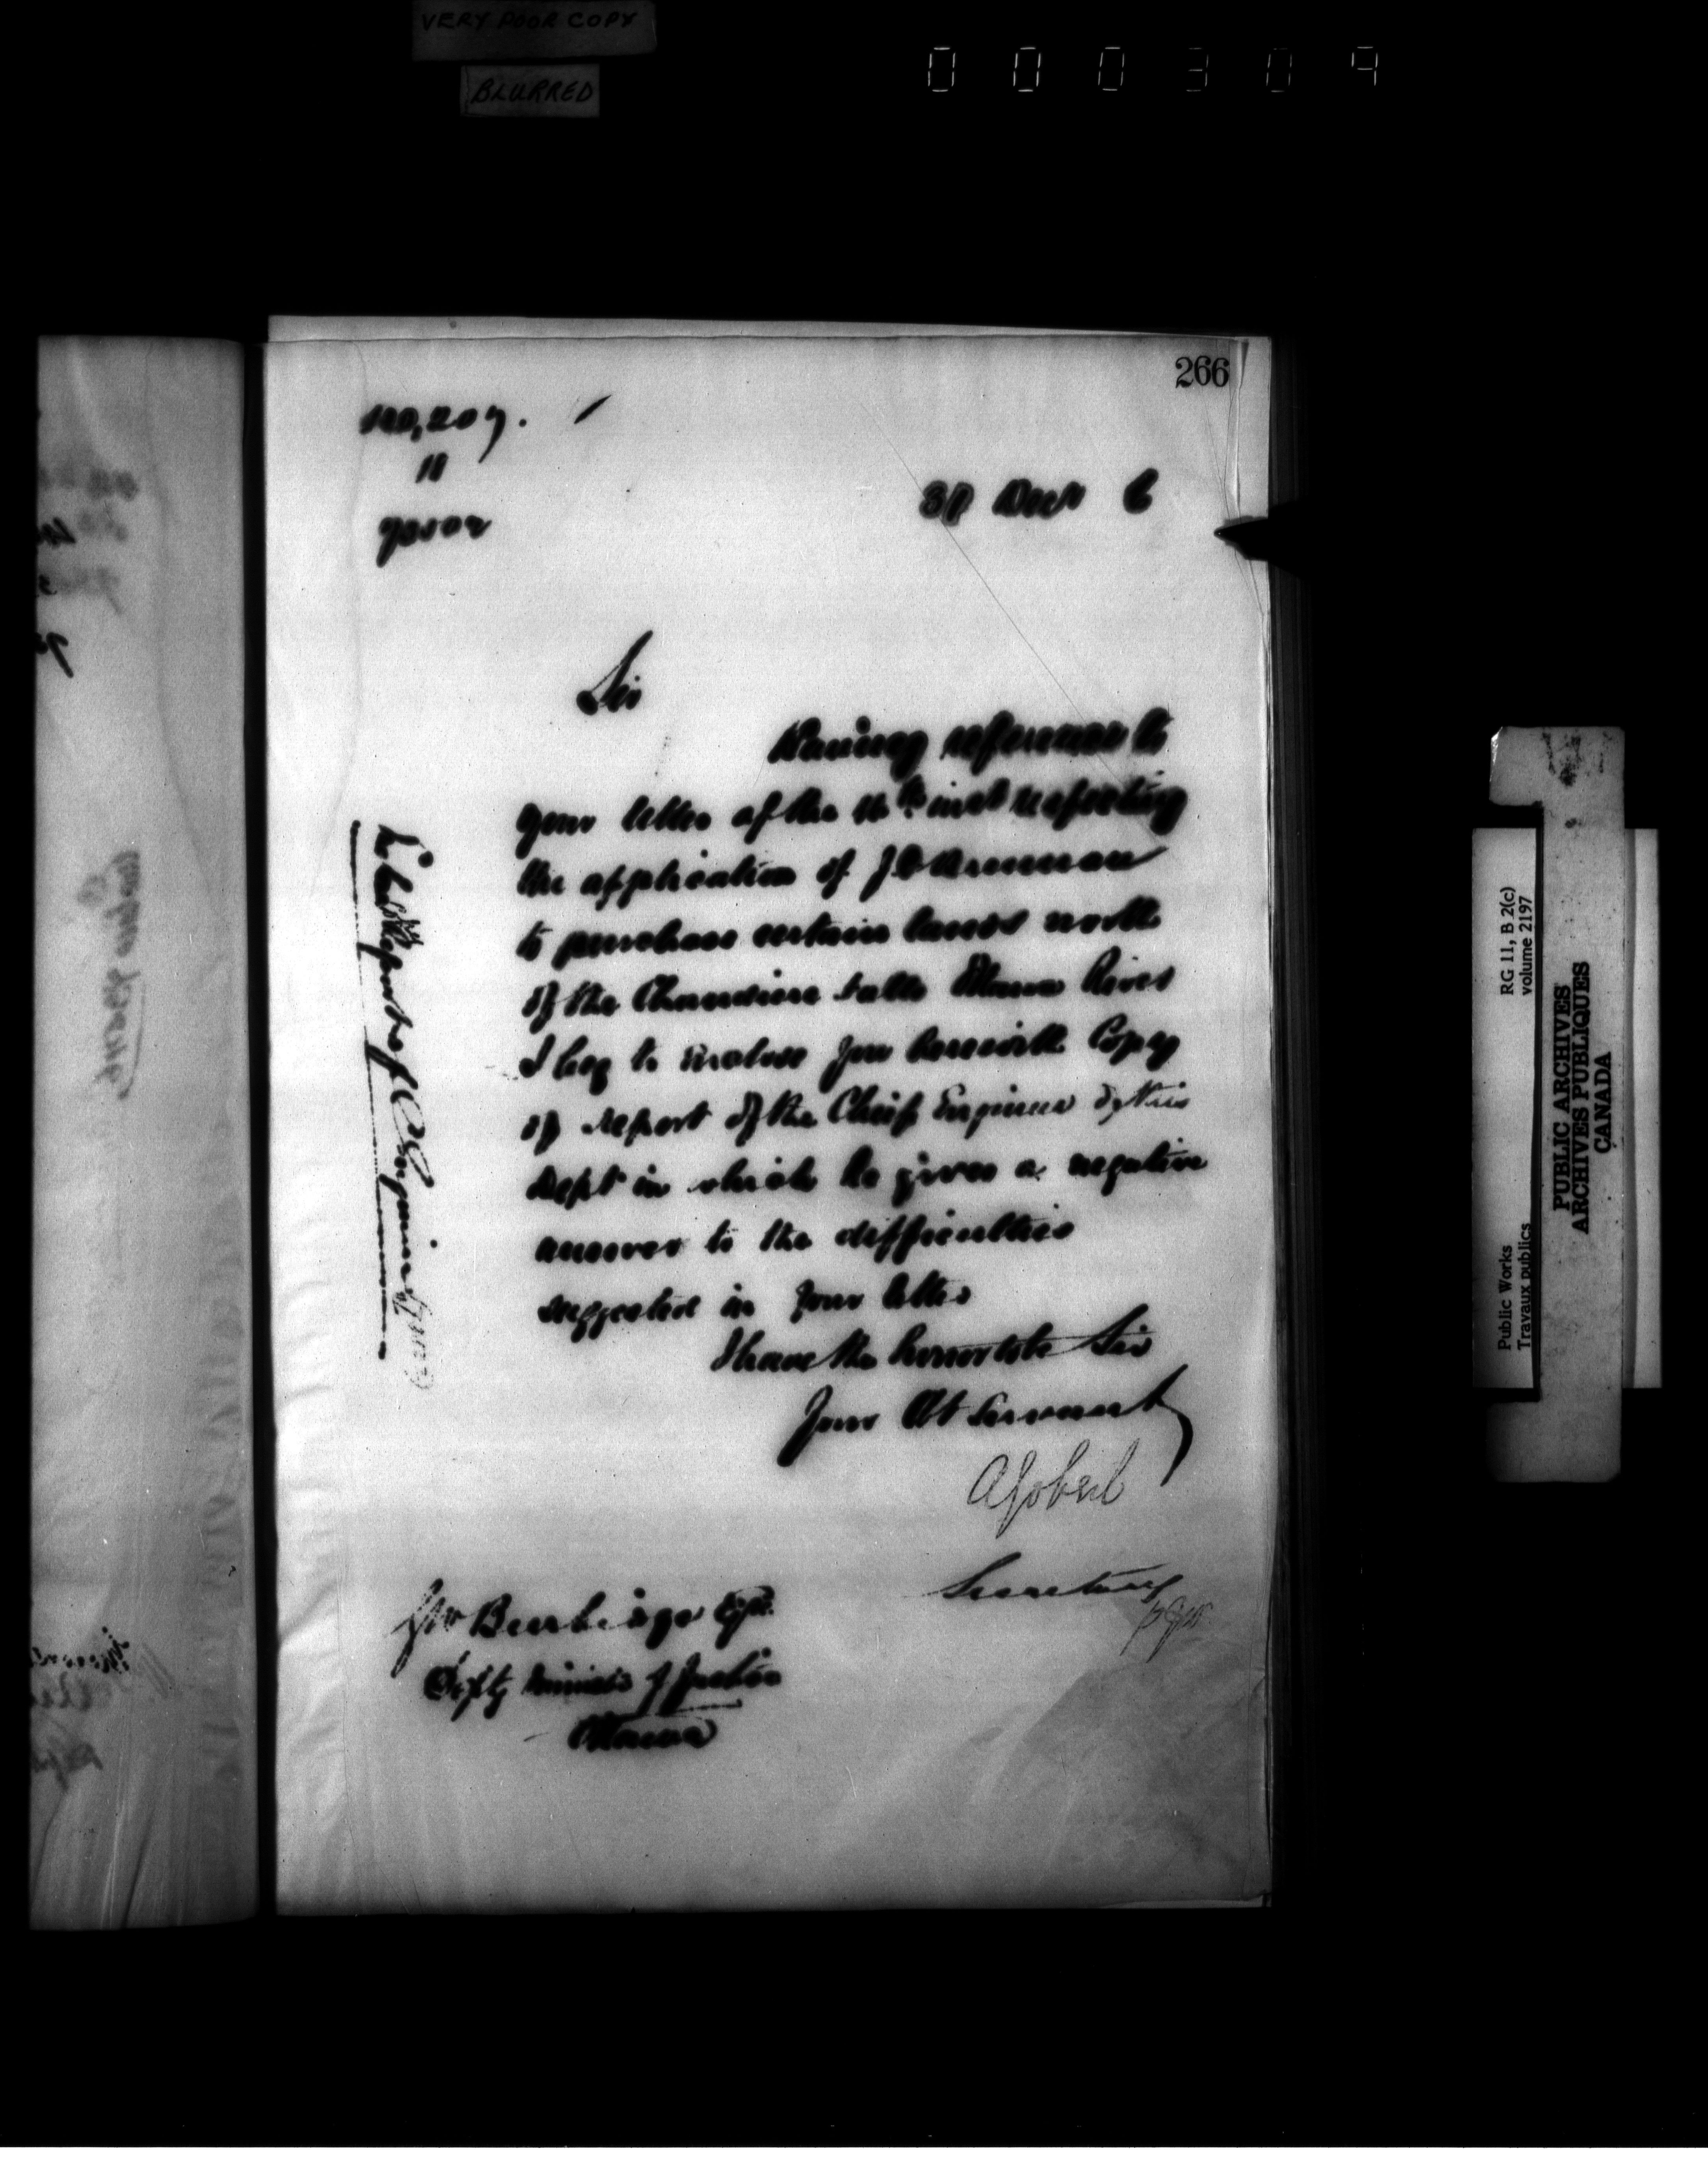 VERY POOR COPY
BLURRED
000309
266
11
31 Decr 6
Sir
Having reference to
your letter of the 11th inst respecting
the application of J
to purchase certain lands north
of the Chaudiere Falls Ottawa River
I beg to enclose you herewith Copy
of report of the Chief Engineer of this
Dept in which he gives a negative
answer to the difficulties
suggested in your letter
I have the honor to be Sir
Your Obt Servant
A Gobeil
Secretary
Burbidge Esq.
Depty Minister of Justice
Ottawa
Report of C Engineer
RG 11, B 2(c)
volume 2197
Public Works
Travaux publics
PUBLIC ARCHIVES
ARCHIVES PUBLIQUES
CANADA